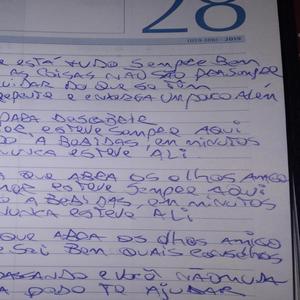 28
e está tudo sempre bem
As coisas não são por sempre
cuidar do que se tem
repente e enxerga um pouco além
para descarte
esteve sempre aqui
do a bebidas, em minutos
nunca esteve ali
a que abra os olhos amigo
esteve sempre aqui
do a bebidas, em minutos
nunca esteve ali
que abra os olhos amigo
e sei bem quais conselhos
passando e você não muda
pode te ajudar